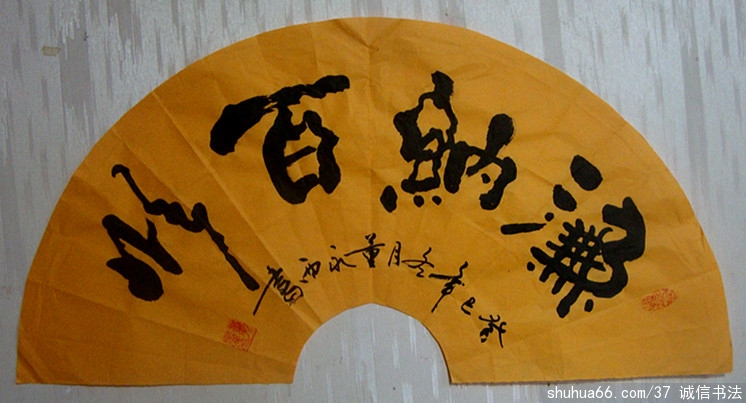 海納百川
癸巳年冬月董永西書
shuhua66.com/37 诚信书法